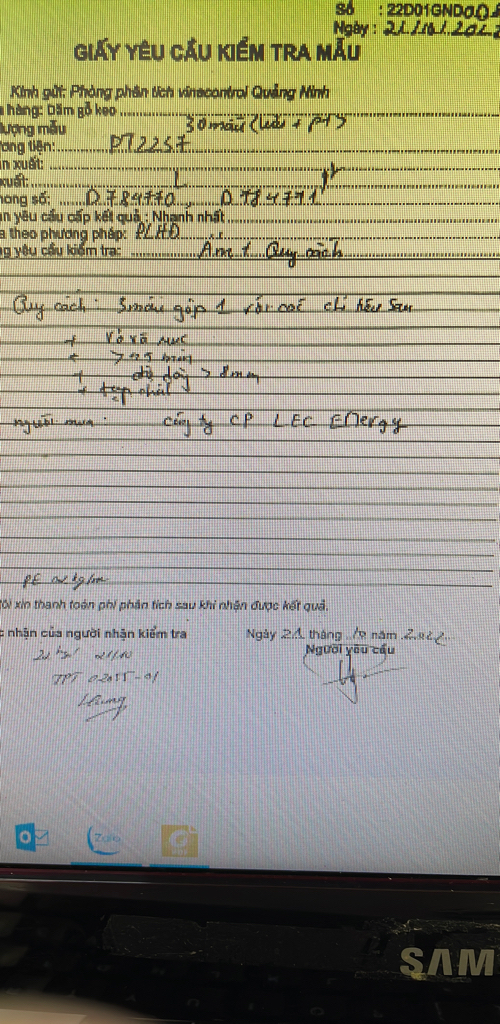 Số : 22D01GND00
Ngày : 21/10/202
GIẤY YÊU CẦU KIỂM TRA MẪU
Kính gửi: Phòng phân tích vinacontrol Quảng Ninh
hàng: Dăm gỗ keo
lượng mẫu 30 mẫu
ơng tiện: PT2257
n xuất:
xuất:
hong số: D.784770, D.784771
n yêu cầu cấp kết quả : Nhanh nhất
a theo phương pháp: PLHD
g yêu cầu kiểm tra: Ẩm + Quy cách
Quy cách : 3 mẫu gộp 1 với các chỉ tiêu sau
+ Vỏ và mục
+
+ độ dày > 8mm
+ tạp chất
người mua : công ty CP LEC Energy
PE
ôi xin thanh toán phí phân tích sau khi nhận được kết quả.
nhận của người nhận kiểm tra
Ngày 21 tháng 10 năm 2022
Người yêu cầu
21/10
TPT 02055-01
Zalo
PDF
SAM